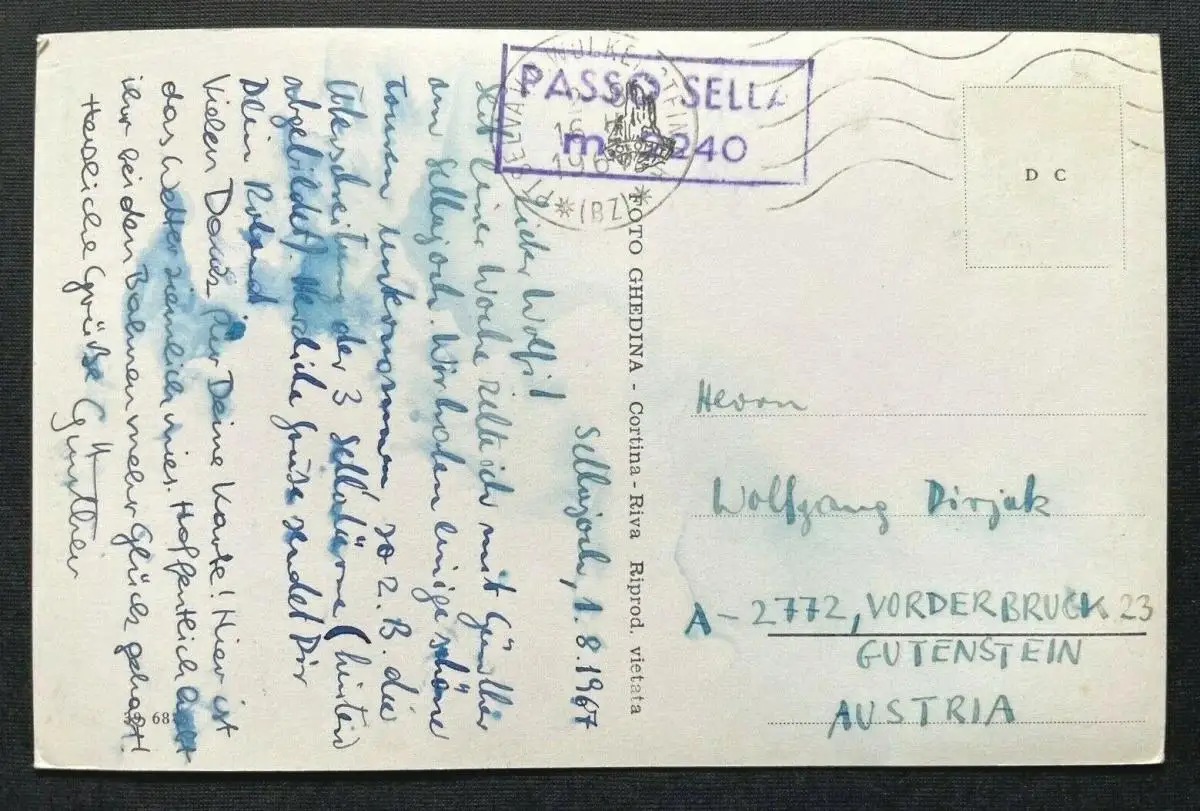 Sellajoch, 1.8.1967
Lieber Wolfi!
Seit einer Woche zelte ich mit Günther
am Sellajoch. Wir haben einige schöne
Touren unternommen, so z.B. die
Überschreitung der 3 Sellatürme (hinten
abgebildet). Herzliche Grüße sendet Dir
Dein Roland
Vielen Dank für Deine Karte! Hier ist
das Wetter ziemlich mies. Hoffentlich
ihr bei den Bergen mehr Glück gehabt!
Herzliche Grüße Günther
FOTO GHEDINA - Cortina - Riva Riprod. vietata
PASSO SELLA
m. 2240
WOLKENSTEIN
SELVA
(BZ)
D C
Herrn
Wolfgang Dirjak
A-2772, VORDERBRUCK 23
GUTENSTEIN
AUSTRIA